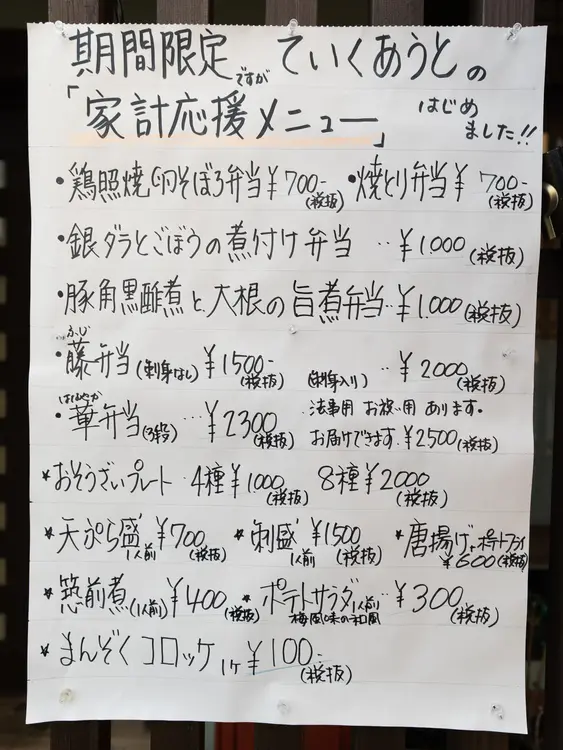 期間限定ですが ていくあうとの
「家計応援メニュー」 はじめました!!
・鶏照焼卵そぼろ弁当 ¥700-(税抜) ・焼とり弁当 ¥700-(税抜)
・銀ダラとごぼうの煮付け弁当 ‥¥1000(税抜)
・豚角黒酢煮と大根の旨煮弁当‥¥1,000(税抜)
ふじ
・藤弁当(刺身なし) ¥1500-(税抜) (刺身入り) ‥¥2000(税抜)
はなやか
・華弁当(3段)…¥2300(税抜) 法事用 お祝い用 あります。
お届けできます.¥2500(税抜)
*おそうざいプレート・4種¥1000(税抜) 8種¥2000(税抜)
*天ぷら盛1人前¥700(税抜) *刺盛1人前¥1500(税抜) *唐揚げ+ポテトフライ¥600(税抜)
*筑前煮(1人前)¥400(税抜) *ポテトサラダ1人前‥¥300(税抜)
梅風味の和風
*まんぞくコロッケ1ケ¥100-(税抜)